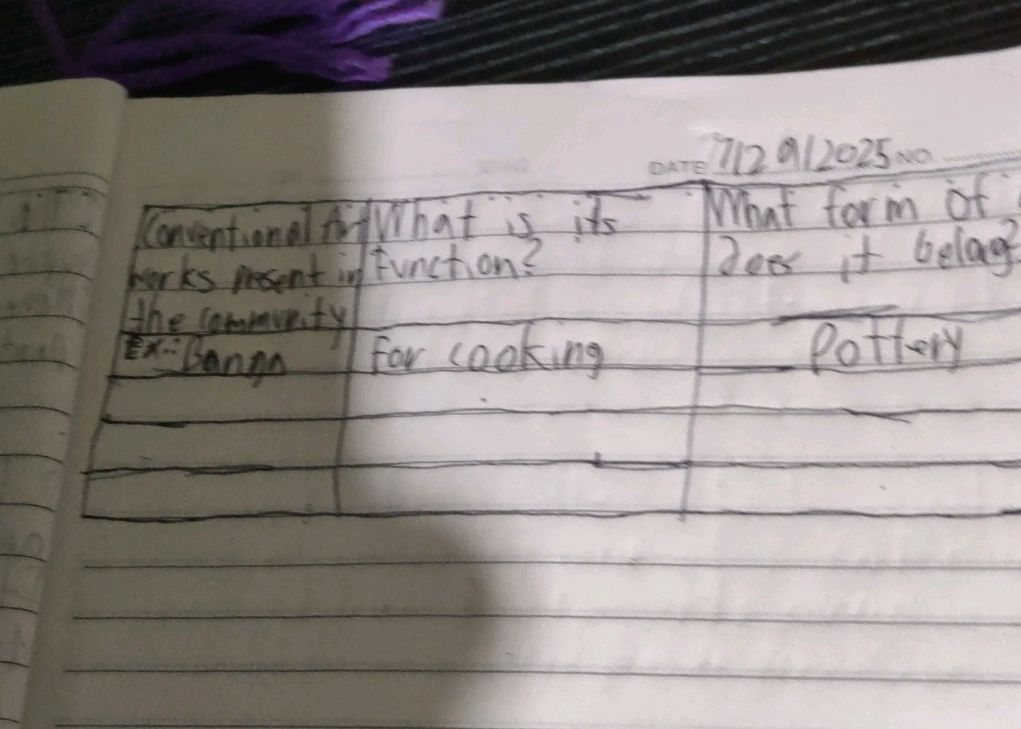 DATE 7/29/2025 NO.
Conventional Art What is its What form of
works present in function? Does it belong?
the community
Ex: Banga for cooking Pottery